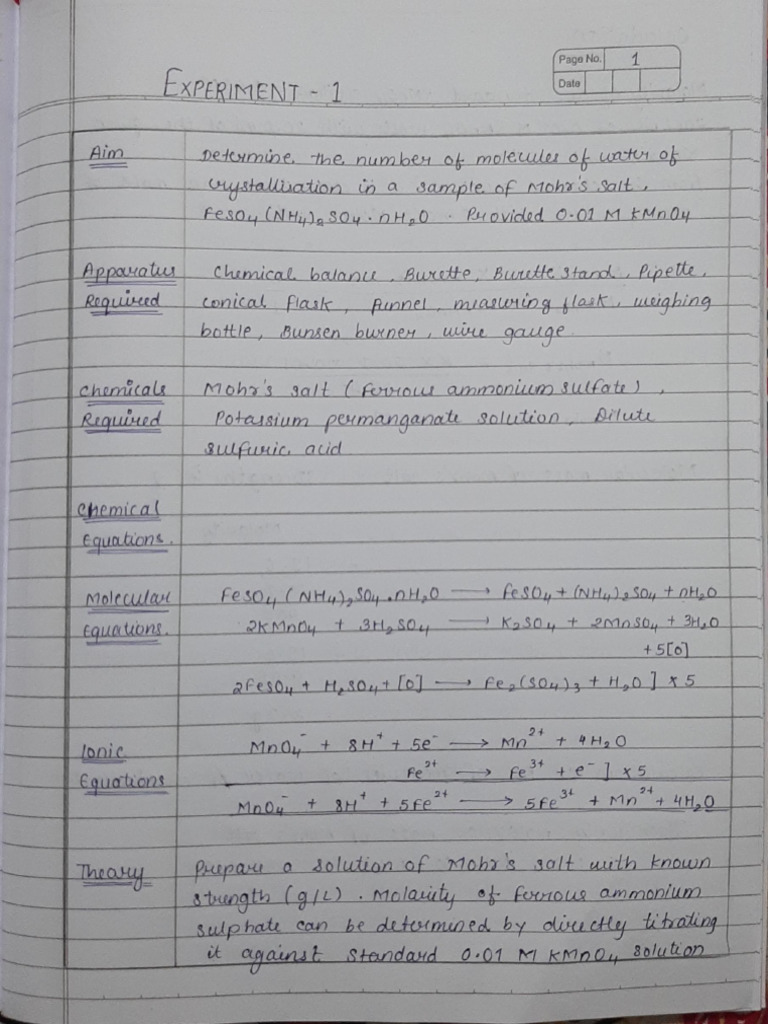 Page No. 1
EXPERIMENT - 1
Date
Aim Determine the number of molecules of water of
crystallisation in a sample of Mohr's salt,
FeSO₄(NH₄)₂SO₄·nH₂O. Provided 0.01 M KMnO₄
Apparatus Chemical balance, Burette, Burette stand, Pipette,
Required conical flask, funnel, measuring flask, weighing
bottle, Bunsen burner, wire gauge.
Chemicals Mohr's salt (ferrous ammonium sulfate),
Required Potassium permanganate solution, Dilute
sulfuric acid
Chemical
Equations.
Molecular FeSO₄(NH₄)₂SO₄·nH₂O ⟶ FeSO₄ + (NH₄)₂SO₄ + nH₂O
Equations. 2KMnO₄ + 3H₂SO₄ ⟶ K₂SO₄ + 2MnSO₄ + 3H₂O
+ 5[O]
2FeSO₄ + H₂SO₄ + [O] ⟶ Fe₂(SO₄)₃ + H₂O ] × 5
Ionic MnO₄⁻ + 8H⁺ + 5e⁻ ⟶ Mn²⁺ + 4H₂O
Equations Fe²⁺ ⟶ Fe³⁺ + e⁻ ] × 5
MnO₄⁻ + 8H⁺ + 5Fe²⁺ ⟶ 5Fe³⁺ + Mn²⁺ + 4H₂O
Theory Prepare a solution of Mohr's salt with known
strength (g/L). Molarity of ferrous ammonium
sulphate can be determined by directly titrating
it against standard 0.01 M KMnO₄ solution